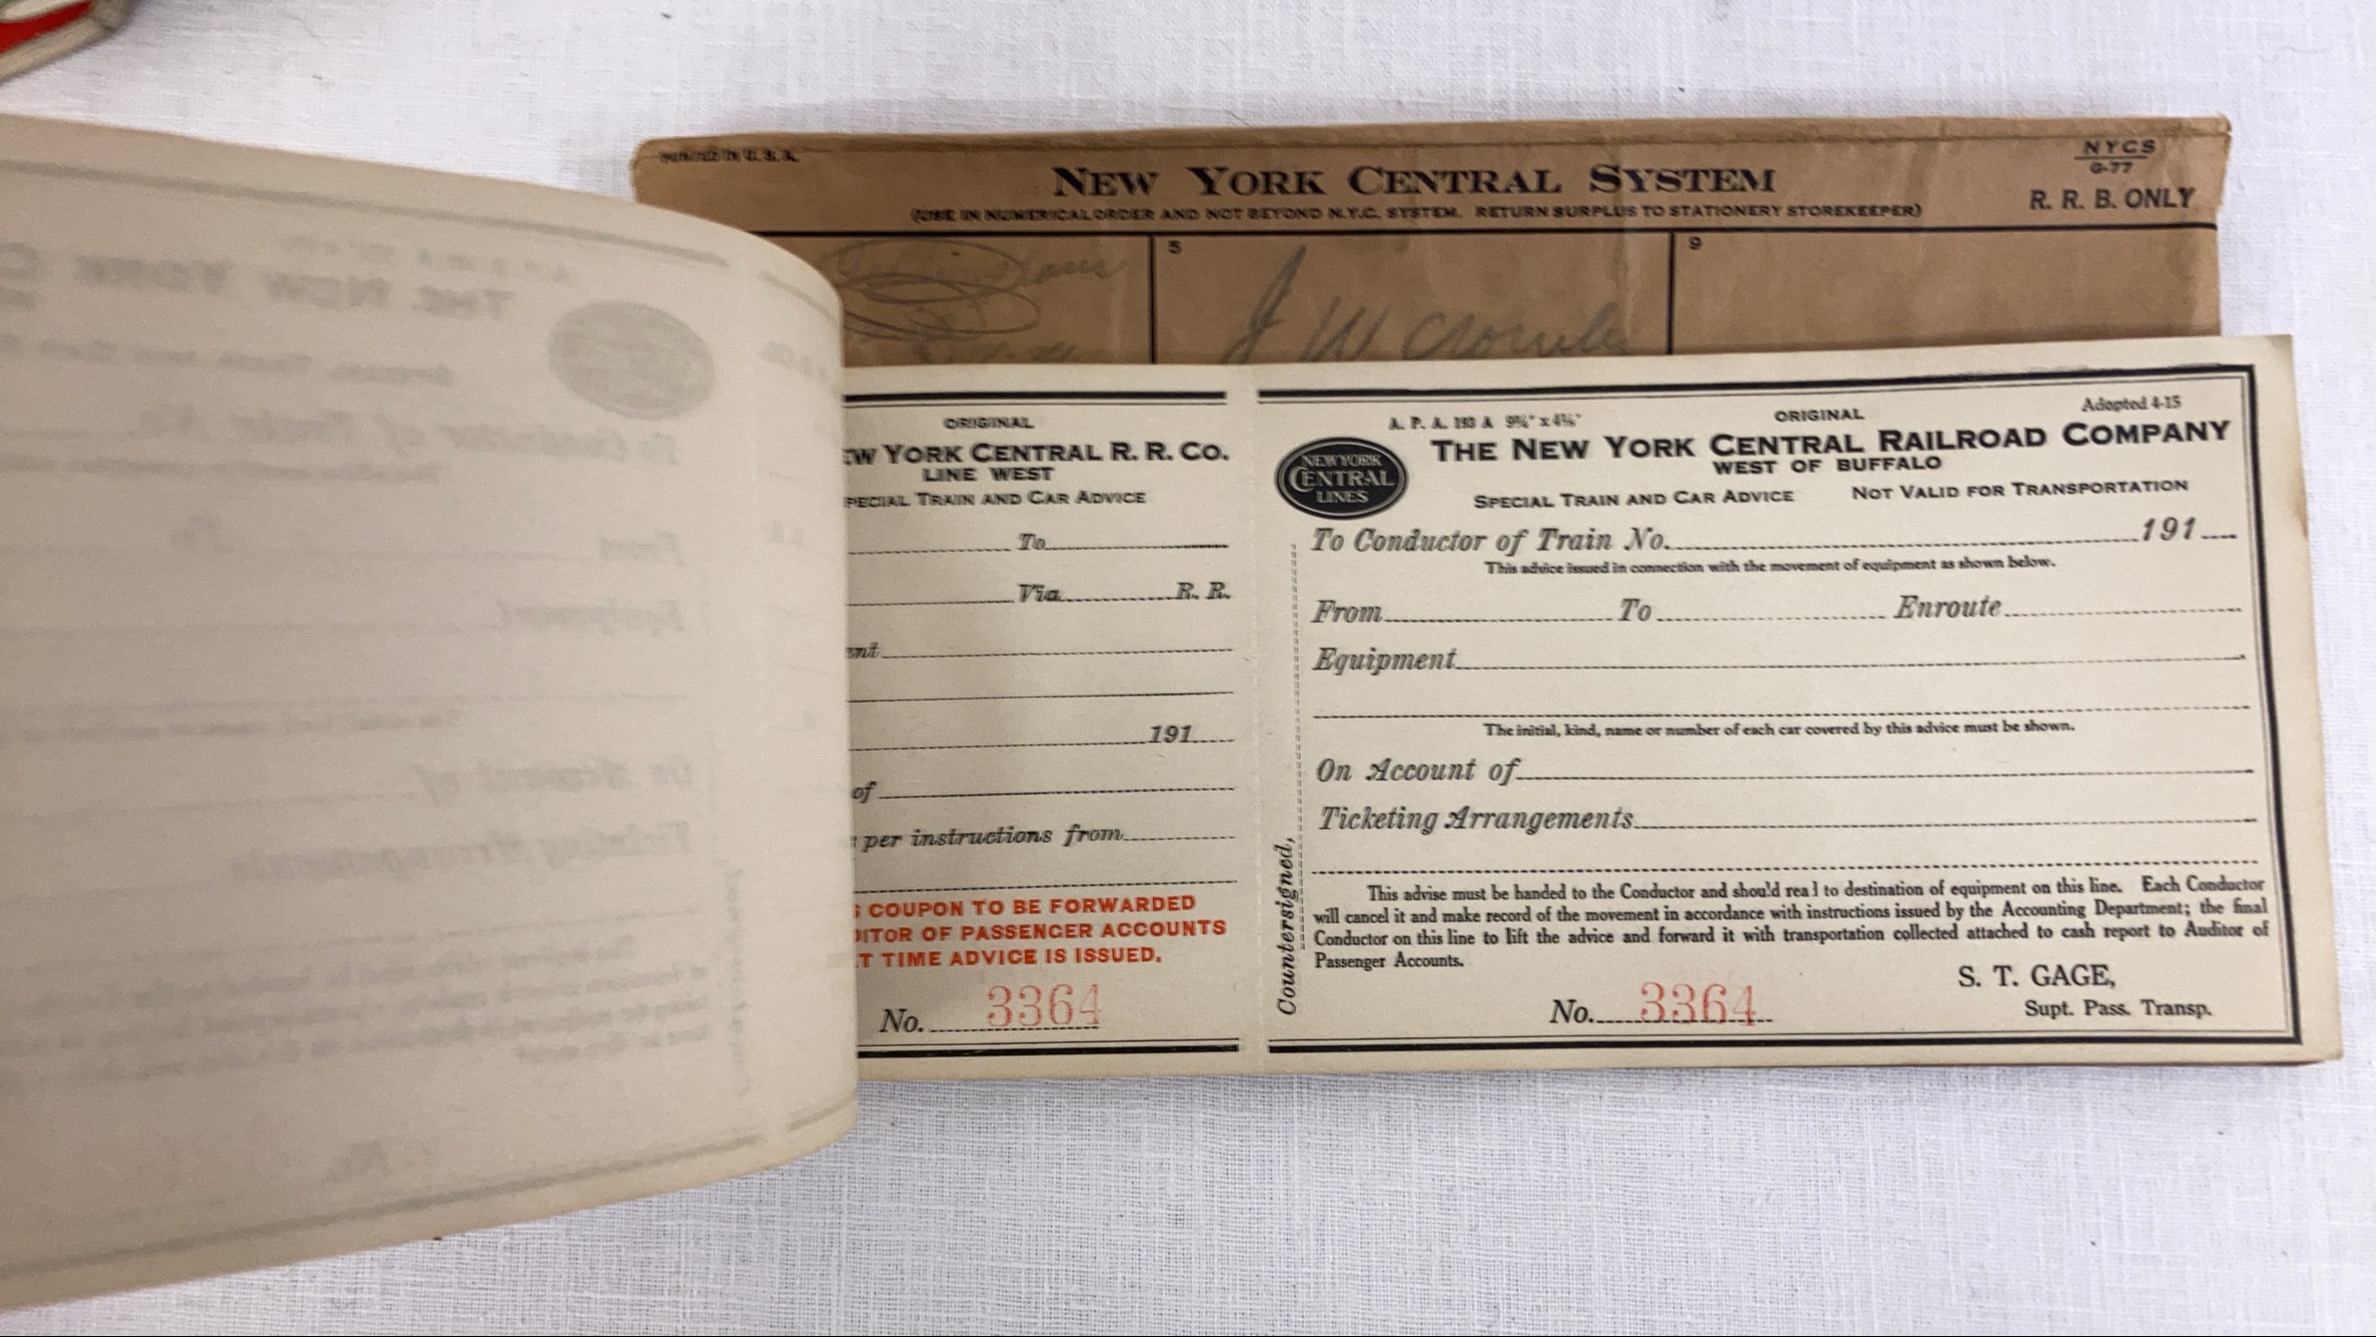 NEW YORK CENTRAL SYSTEM
(USE IN NUMERICAL ORDER AND NOT BEYOND N.Y.C. SYSTEM. RETURN SURPLUS TO STATIONERY STOREKEEPER)
NYCS
G-77
R. R. B. ONLY
5
9
J W
ORIGINAL
EW YORK CENTRAL R. R. CO.
LINE WEST
PECIAL TRAIN AND CAR ADVICE
To
Via R. R.
ent
191
of
per instructions from
S COUPON TO BE FORWARDED
DITOR OF PASSENGER ACCOUNTS
T TIME ADVICE IS ISSUED.
No. 3364
A. P. A. 193 A 9¾" x 4¾"
ORIGINAL
Adopted 4-15
NEW YORK
CENTRAL
LINES
THE NEW YORK CENTRAL RAILROAD COMPANY
WEST OF BUFFALO
SPECIAL TRAIN AND CAR ADVICE NOT VALID FOR TRANSPORTATION
To Conductor of Train No. 191
This advice issued in connection with the movement of equipment as shown below.
From To Enroute
Equipment
The initial, kind, name or number of each car covered by this advice must be shown.
On Account of
Ticketing Arrangements
This advise must be handed to the Conductor and shou'd rea l to destination of equipment on this line. Each Conductor
will cancel it and make record of the movement in accordance with instructions issued by the Accounting Department; the final
Conductor on this line to lift the advice and forward it with transportation collected attached to cash report to Auditor of
Passenger Accounts.
S. T. GAGE,
Supt. Pass. Transp.
No. 3364
Countersigned,